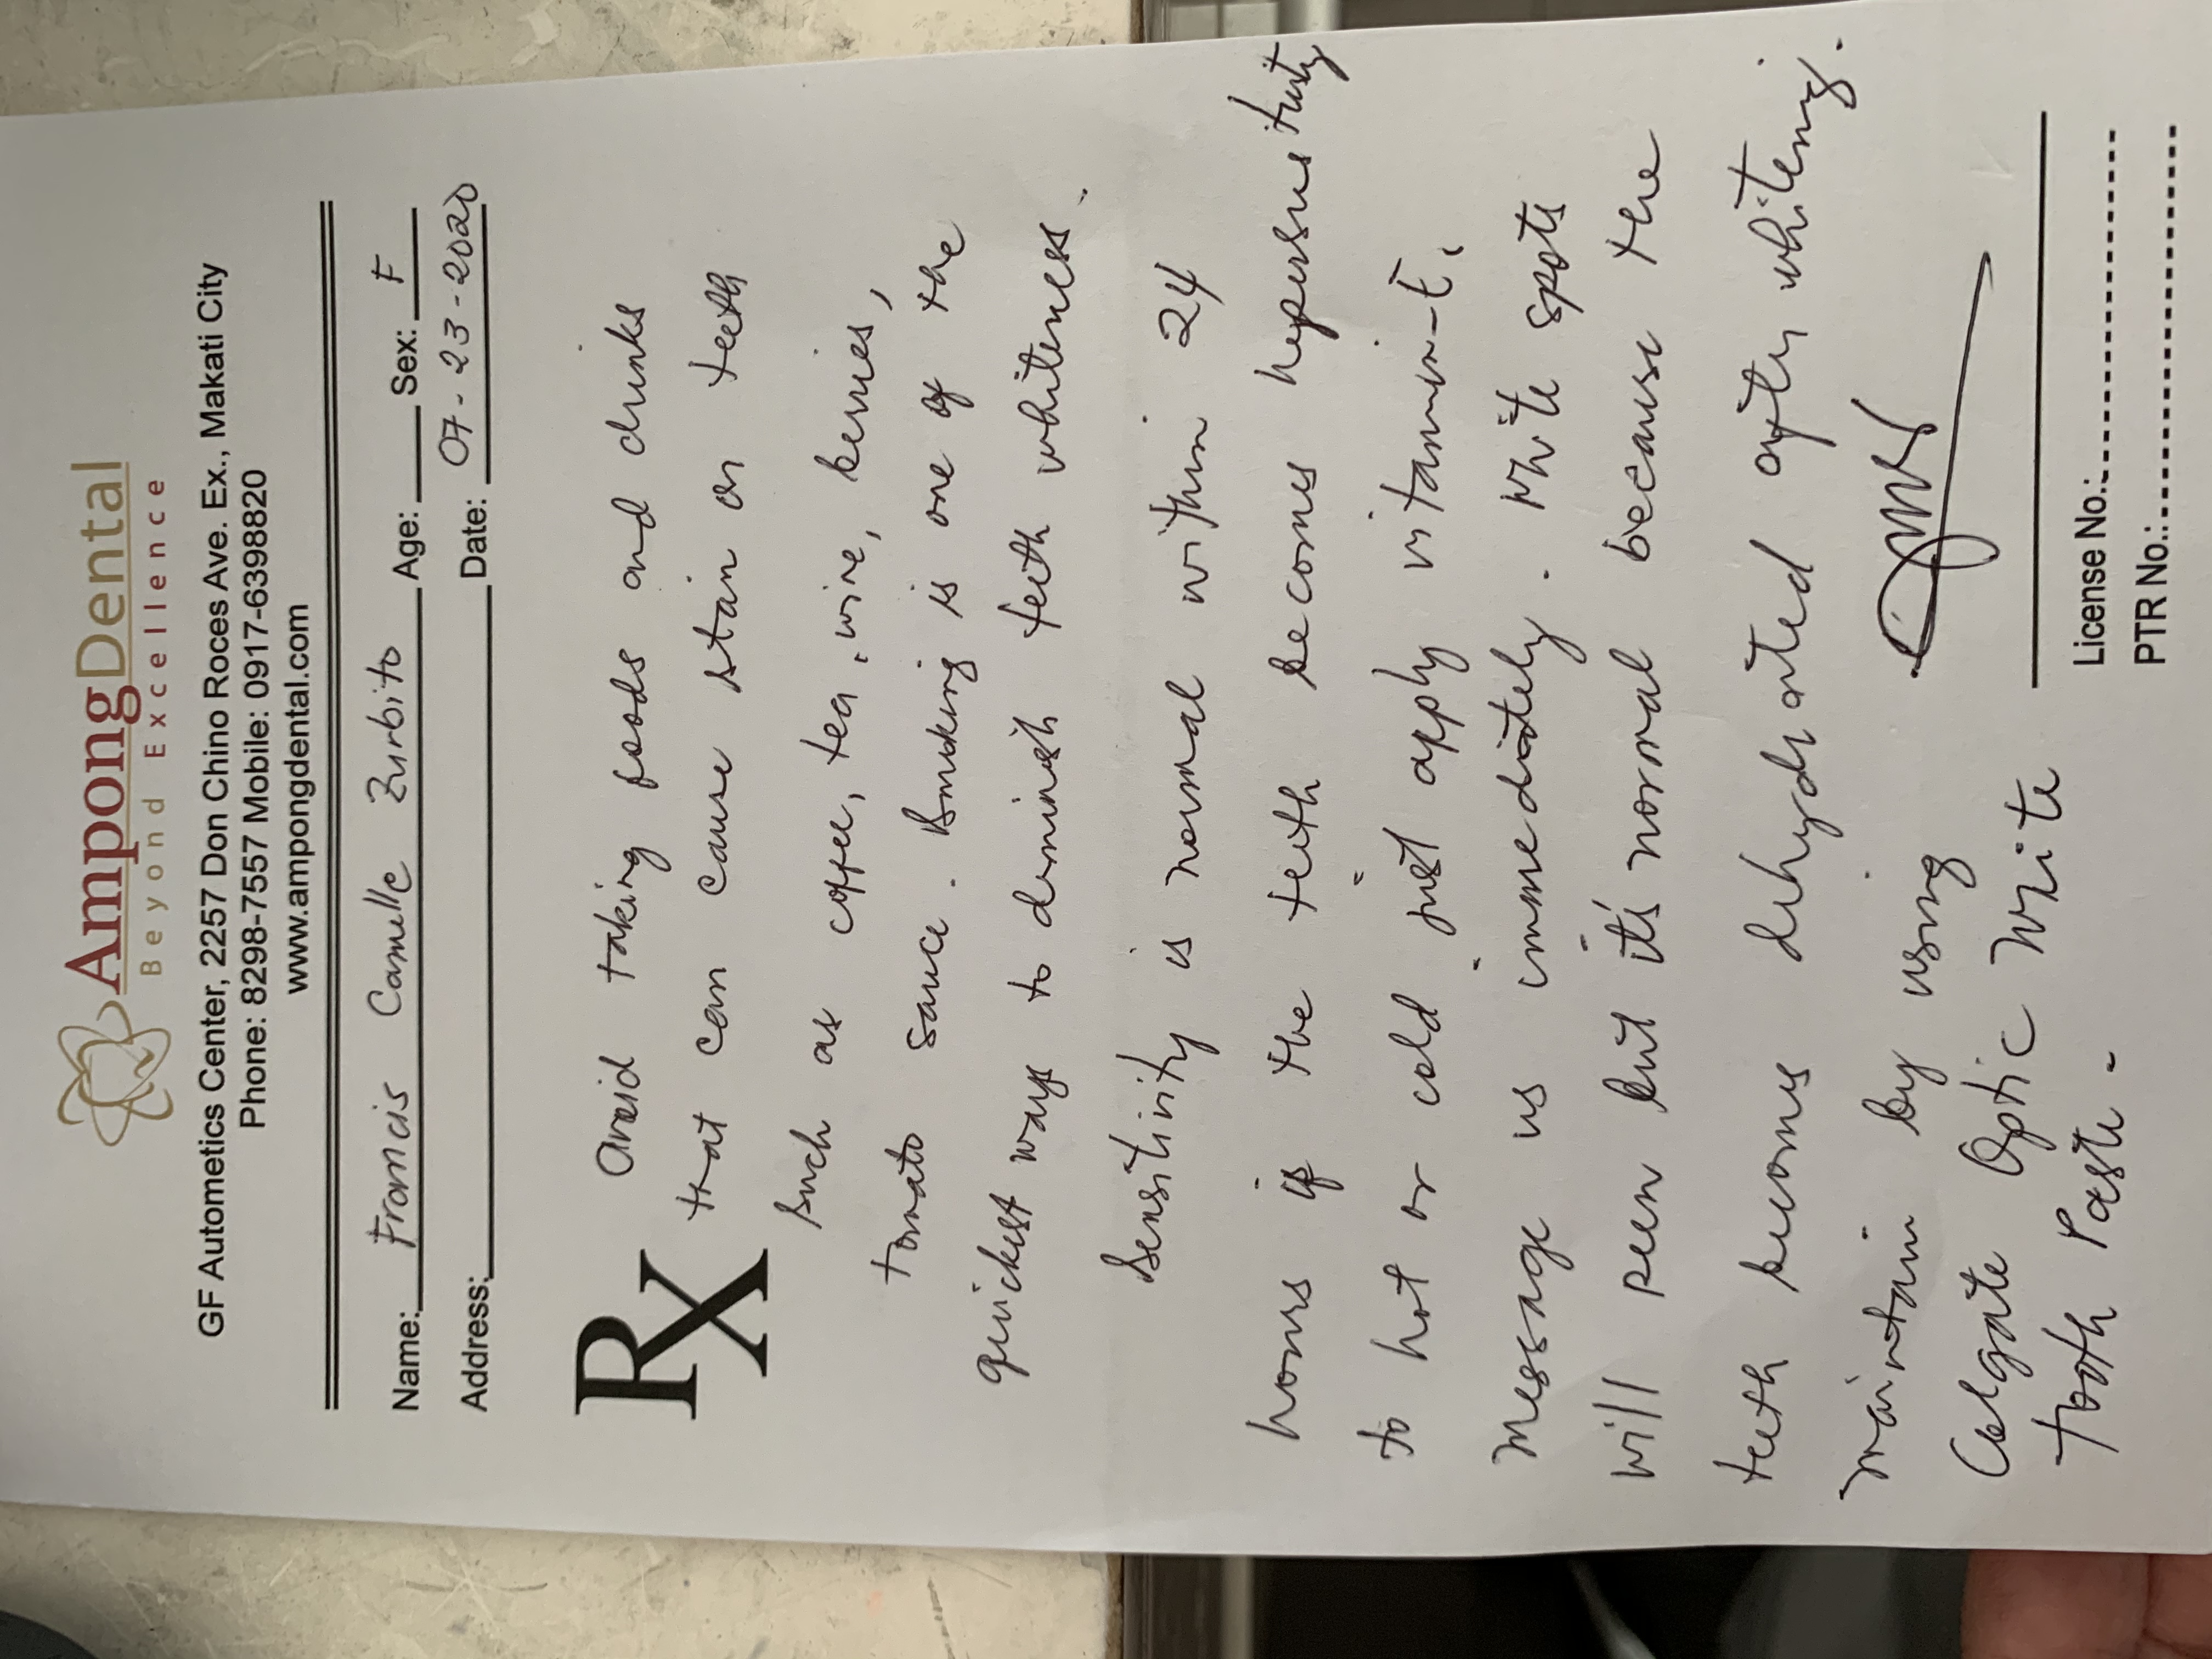 AmpongDental
Beyond Excellence
GF Autometics Center, 2257 Don Chino Roces Ave. Ex., Makati City
Phone: 8298-7557 Mobile: 0917-6398820
www.ampongdental.com
Name: Francis Camille Zurbito Age: Sex: F
Address: Date: 07-23-2020
Rx Avoid taking foods and drinks
that can cause stain on teeth
such as coffee, tea, wine, berries,
tomato sauce. Smoking is one of the
quickest ways to diminish teeth whiteness.
Sensitivity is normal within 24
hours if the teeth becomes
to hot or cold just apply vitamin-E.
Message us immediately. White spots
will seen but it's normal because the
teeth becomes dehydrated after whitening.
Maintain by using
Colgate Optic White
Tooth Paste.
License No.:
PTR No.: